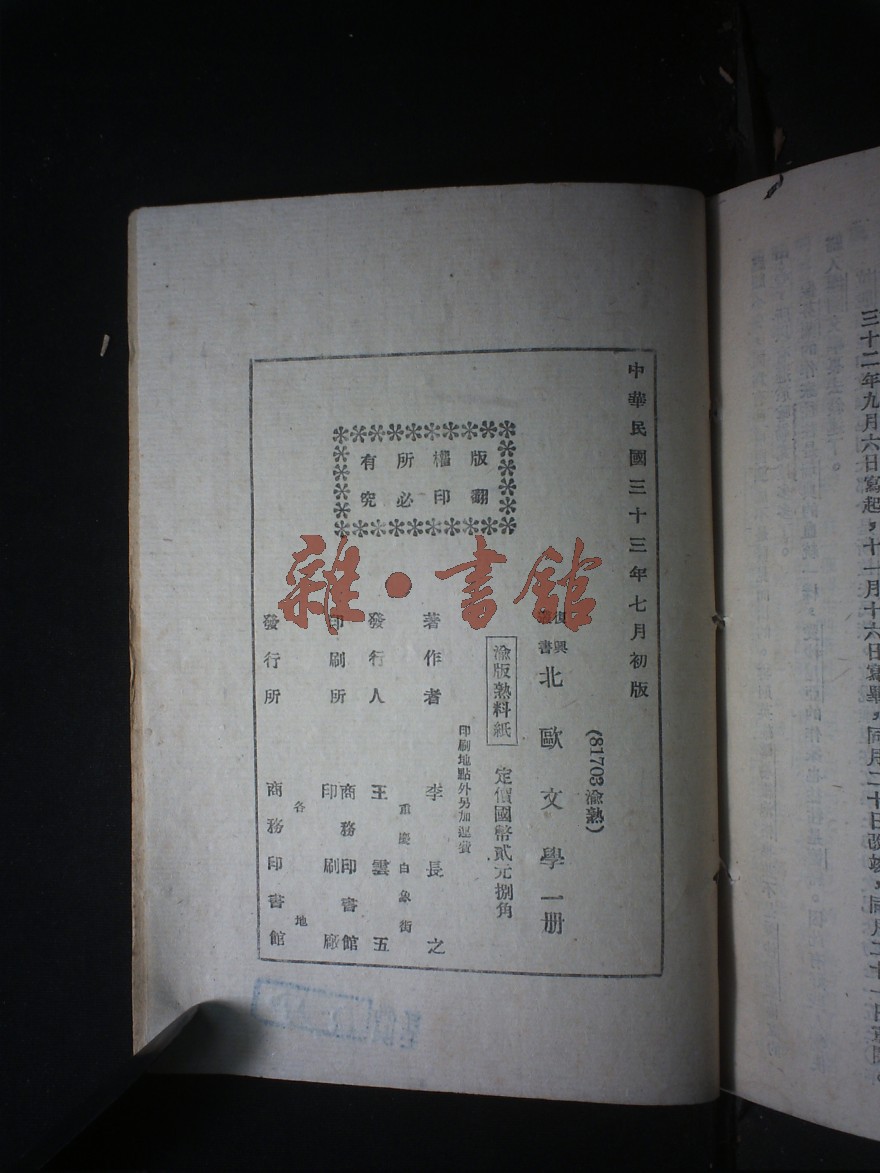 三十二年九月六日寫起，十一月十六日寫畢，同月二十日改竣，同月二十一日
中華民國三十三年七月初版
(81703渝熟)
復興叢書
北歐文學一册
渝版熟料紙
定價國幣貳元捌角
印刷地點外另加運費
版權所有
翻印必究
著作者 李長之
重慶白象街
發行人 王雲五
印刷所 商務印書館印刷廠
各地
發行所 商務印書館
雜·書館